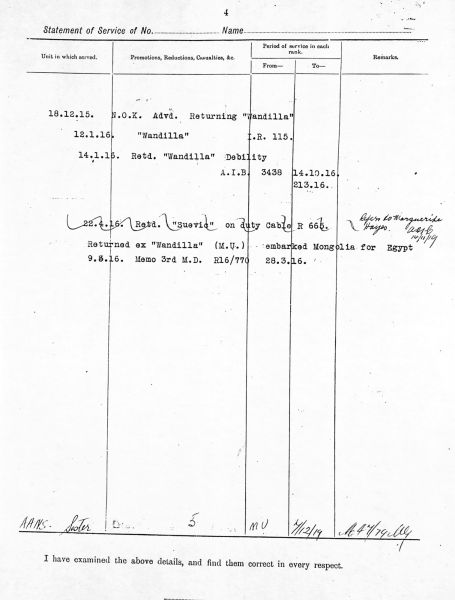 4
Statement of Service of No. Name
Unit in which served. Promotions, Reductions, Casualties, &c. Period of service in each rank. From— To— Remarks.
18.12.15. N.O.K. Advd. Returning "Wandilla"
12.1.16. "Wandilla" I.R. 115.
14.1.16. Retd. "Wandilla" Debility
A.I.B. 3438 14.10.16.
213.16.
22.4.16. Retd. "Suevic" on duty Cable R 66b. Refers to Marguerida
Hayes.
14/11/19
Returned ex "Wandilla" (M.U.) embarked Mongolia for Egypt
9.5.16. Memo 3rd M.D. R16/770 28.3.16.
AANS. Sister D 5 MU 4/12/19
I have examined the above details, and find them correct in every respect.